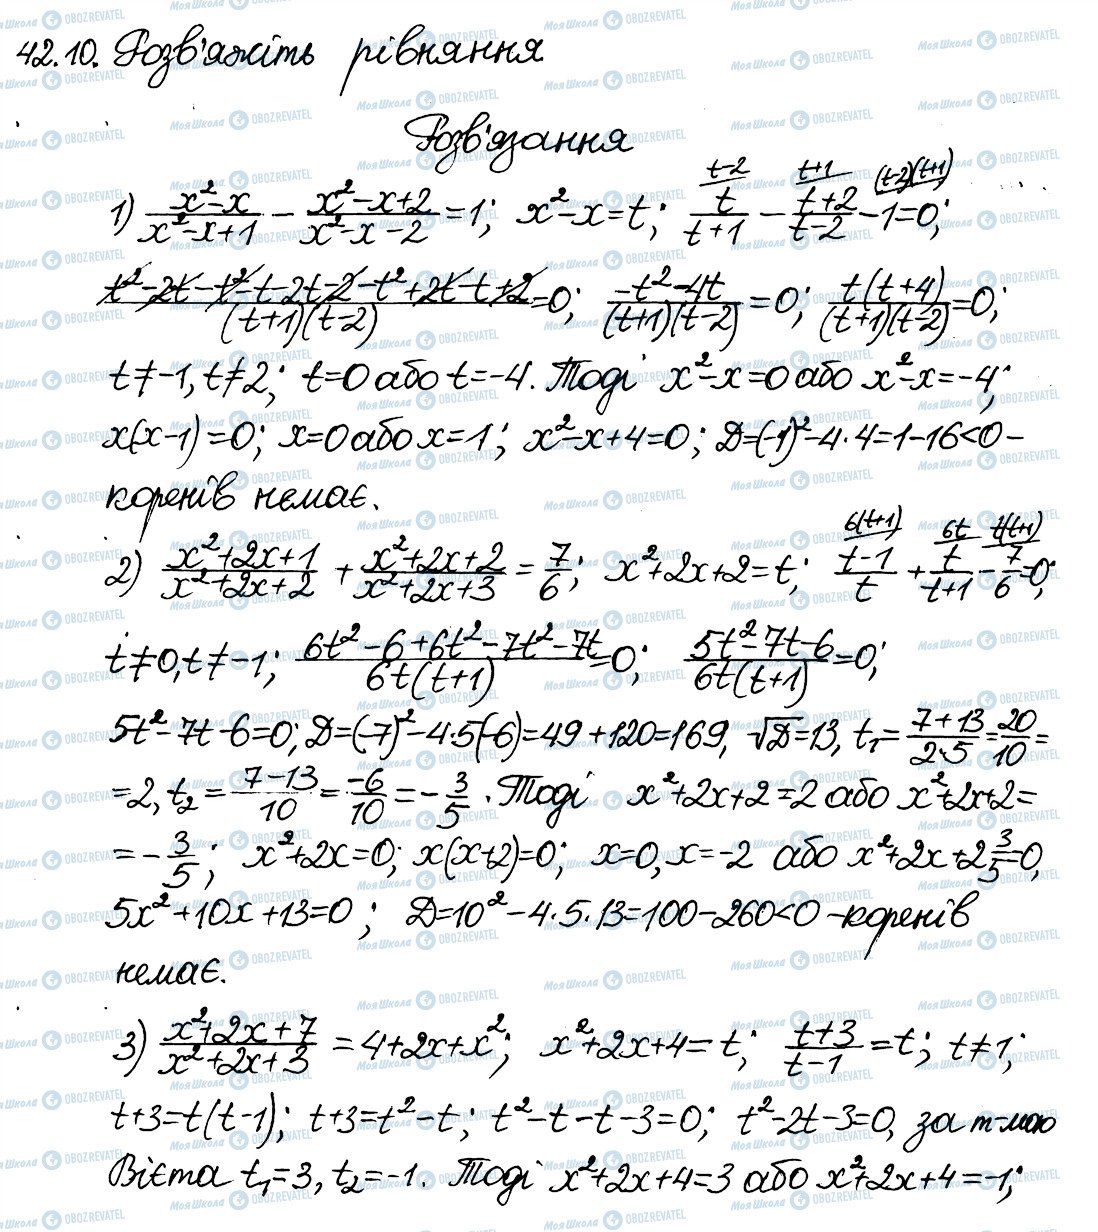 42.10. Розв'яжіть рівняння
Розв'язання
1) (x²-x)/(x²-x+1) - (x²-x+2)/(x²-x-2) = 1; x²-x=t; t/(t+1) [t-2] - (t+2)/(t-2) [t+1] - 1 [(t-2)(t+1)] = 0;
(t²-2t-t²-t-2t-2-t²+2t-t+2)/((t+1)(t-2)) = 0; (-t²-4t)/((t+1)(t-2)) = 0; t(t+4)/((t+1)(t-2)) = 0;
t≠-1, t≠2; t=0 або t=-4. Тоді x²-x=0 або x²-x=-4;
x(x-1)=0; x=0 або x=1; x²-x+4=0; D=(-1)²-4·4=1-16<0 -
коренів немає.
2) (x²+2x+1)/(x²+2x+2) + (x²+2x+2)/(x²+2x+3) = 7/6; x²+2x+2=t; (t-1)/t [6(t+1)] + t/(t+1) [6t] - 7/6 [t(t+1)] = 0;
t≠0, t≠-1; (6t²-6+6t²-7t²-7t)/(6t(t+1)) = 0; (5t²-7t-6)/(6t(t+1)) = 0;
5t²-7t-6=0; D=(-7)²-4·5(-6)=49+120=169, √D=13, t₁=(7+13)/(2·5)=20/10=
=2, t₂=(7-13)/10=-6/10=-3/5. Тоді x²+2x+2=2 або x²+2x+2=
=-3/5; x²+2x=0; x(x+2)=0; x=0, x=-2 або x²+2x+2 3/5=0,
5x²+10x+13=0; D=10²-4·5·13=100-260<0 -коренів
немає.
3) (x²+2x+7)/(x²+2x+3) = 4+2x+x²; x²+2x+4=t; (t+3)/(t-1)=t; t≠1;
t+3=t(t-1); t+3=t²-t; t²-t-t-3=0; t²-2t-3=0, за т-мою
Вієта t₁=3, t₂=-1. Тоді x²+2x+4=3 або x²+2x+4=-1;